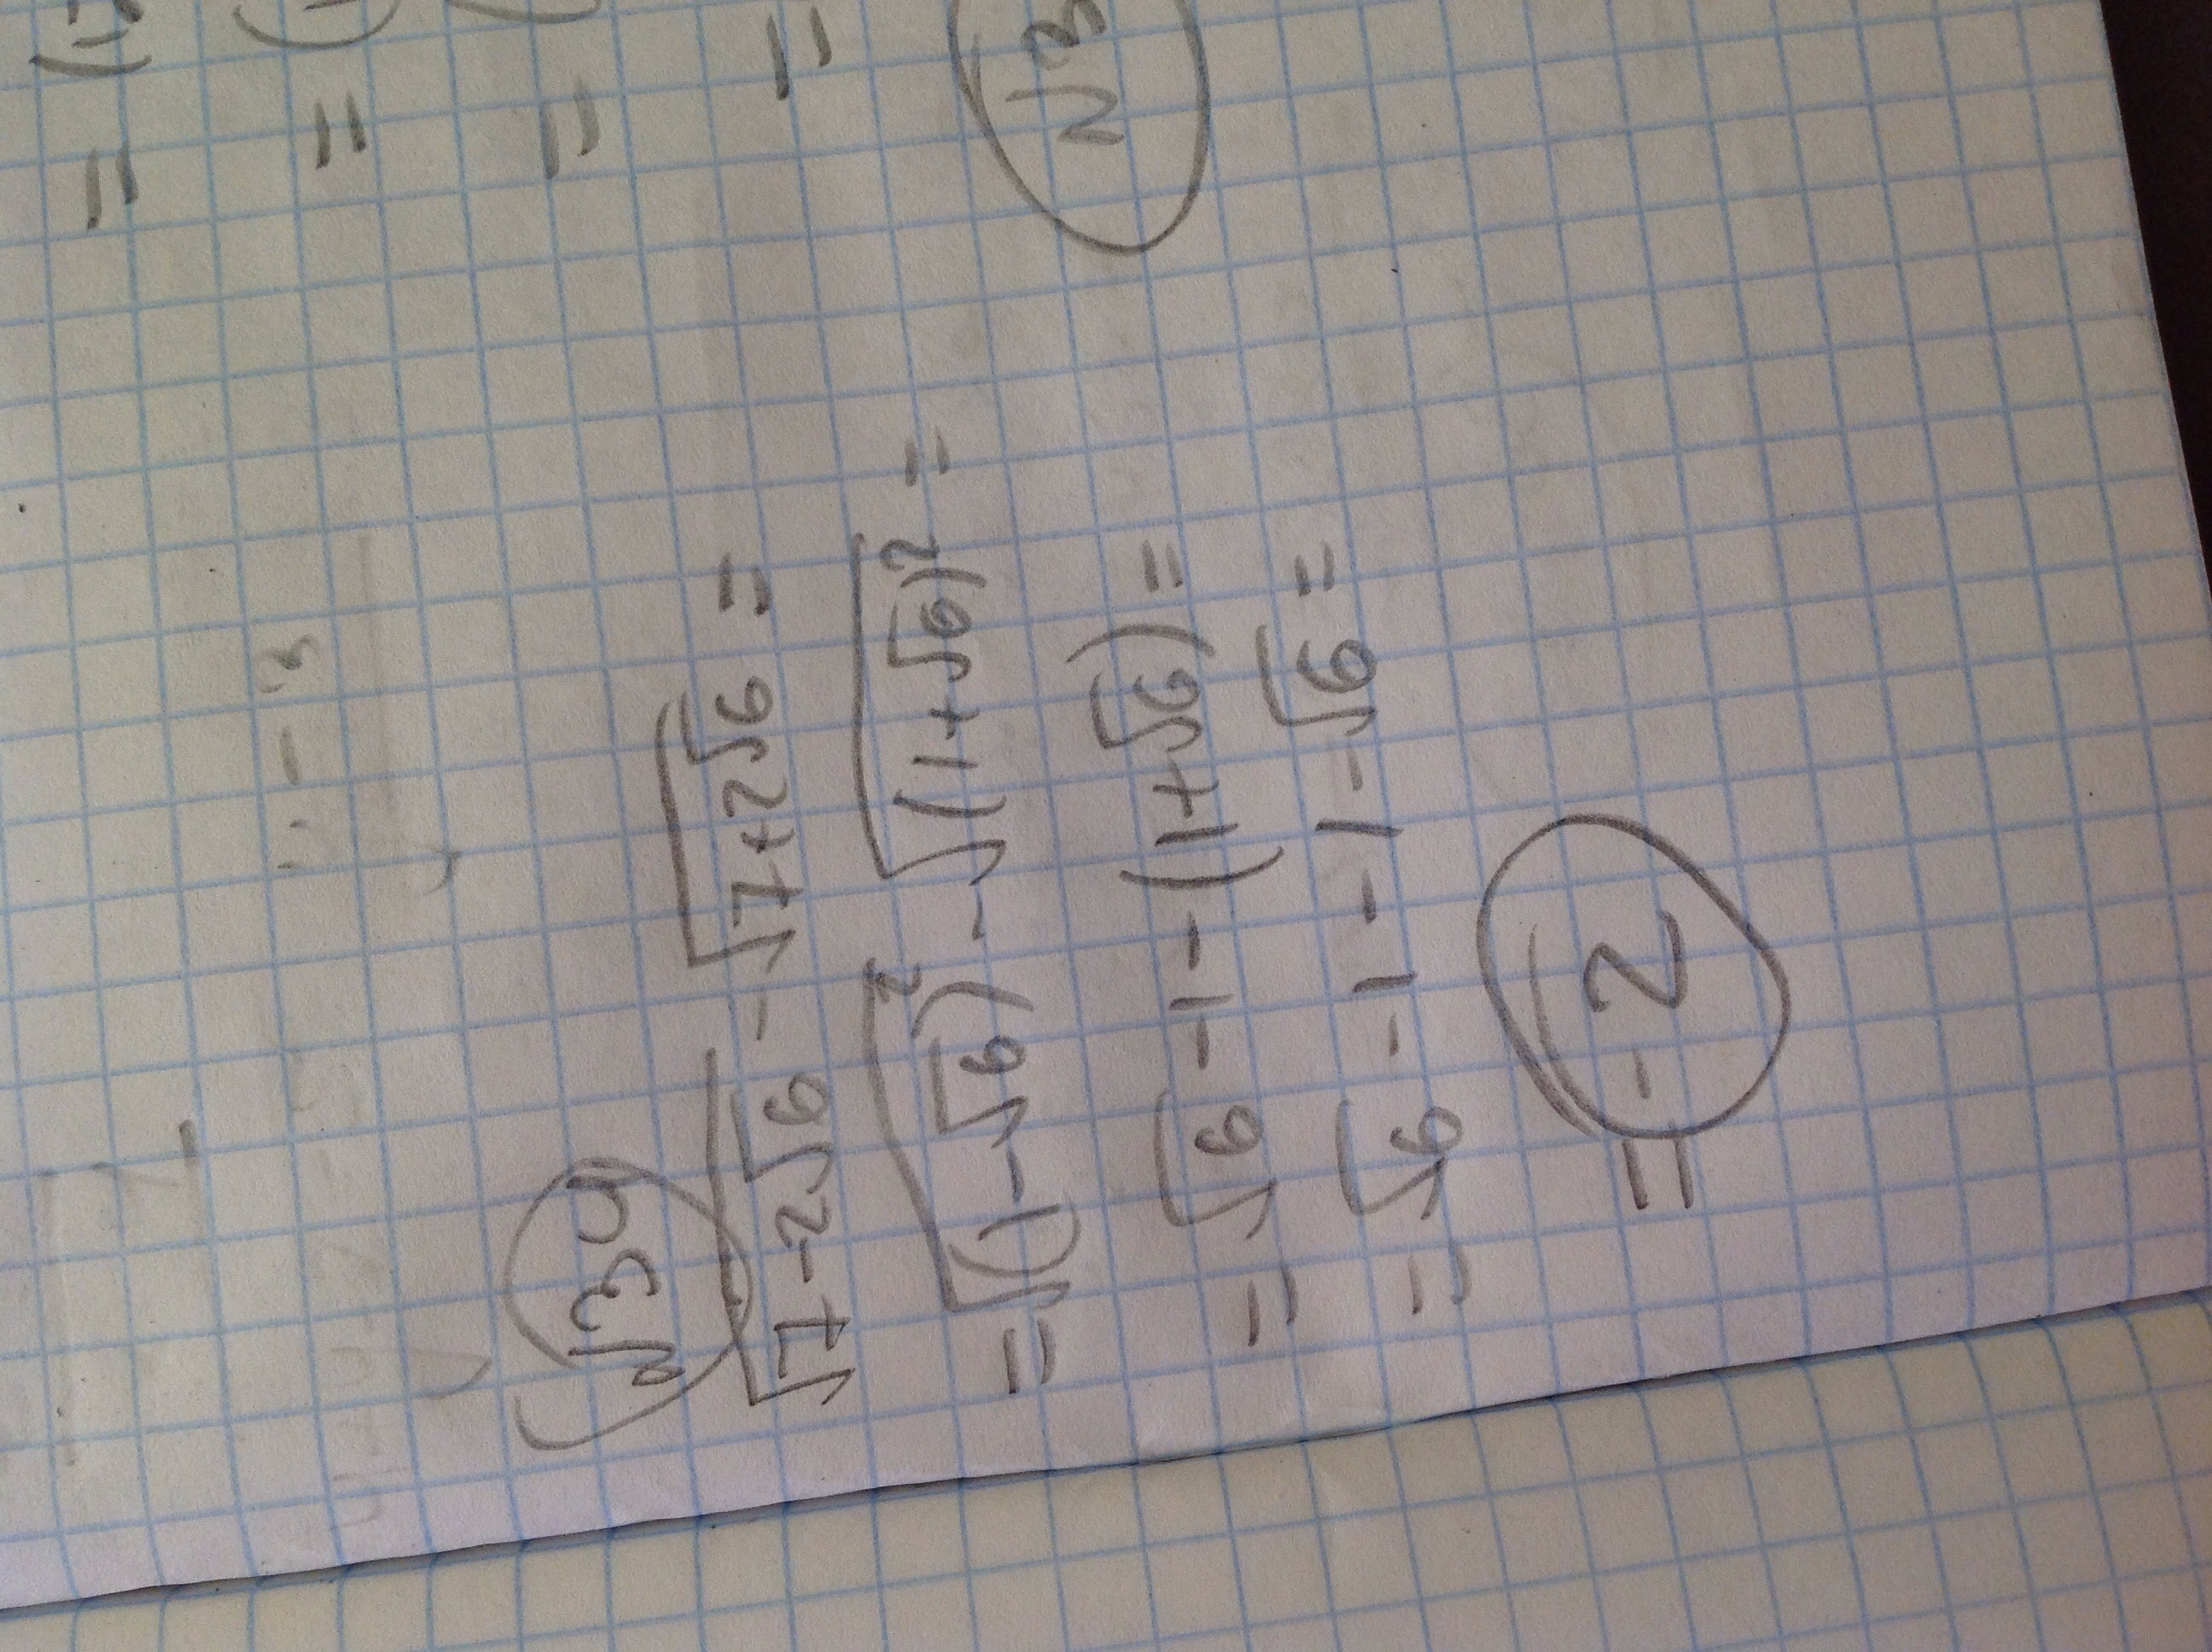 N34
√(7-2√6) - √(7+2√6) =
= √((1-√6)²) - √((1+√6)²) =
= √6 - 1 - (1+√6) =
= √6 - 1 - 1 - √6 =
= -2
N3